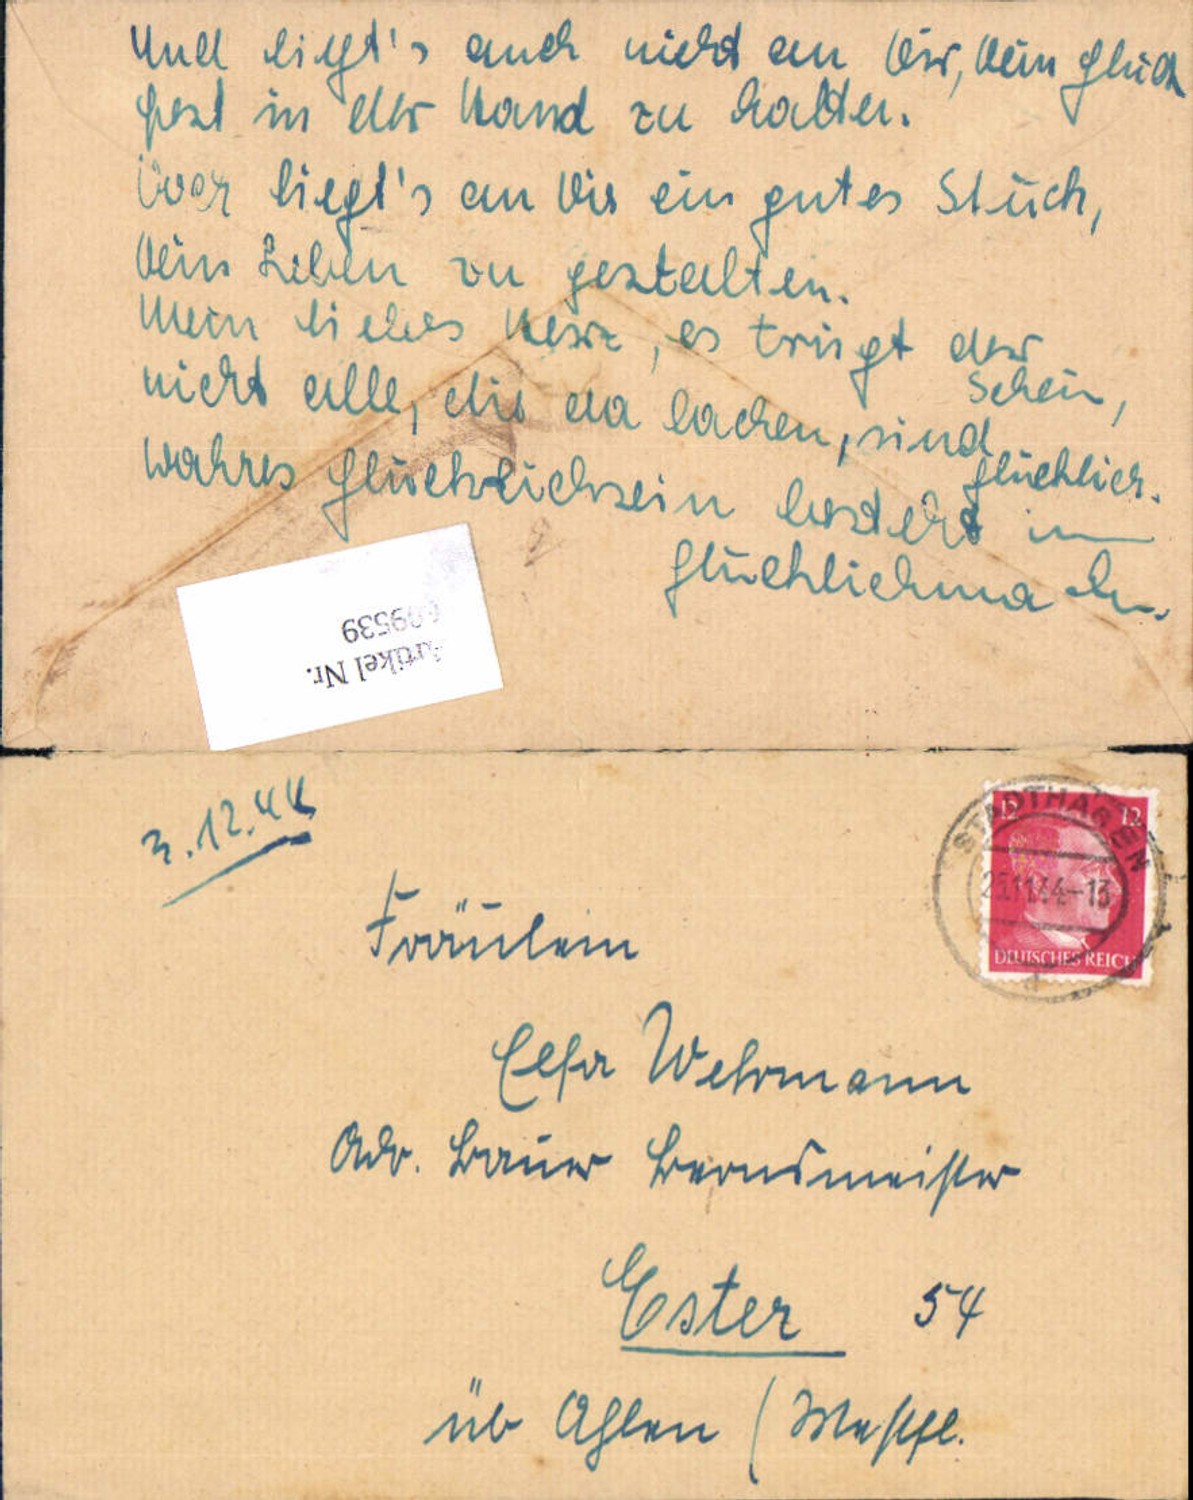 Und liegt's auch nicht an Dir, Dein Glück
fest in der Hand zu halten.
liegt's an Dir ein gutes Stück,
Dein Leben zu gestalten.
Mein liebes Herz, es trügt der
Schein,
nicht alle, die da lachen, sind
glücklich.
wahres Glücklichsein besteht im
Glücklichmachen.
Artikel Nr.
99539
3.12.44
STADTHAGEN
12 12
25.11.44-13
DEUTSCHES REICH
Fräulein
Wehrmann
Adr. Bauer
Ester 54
üb Ahlen / Westfl.